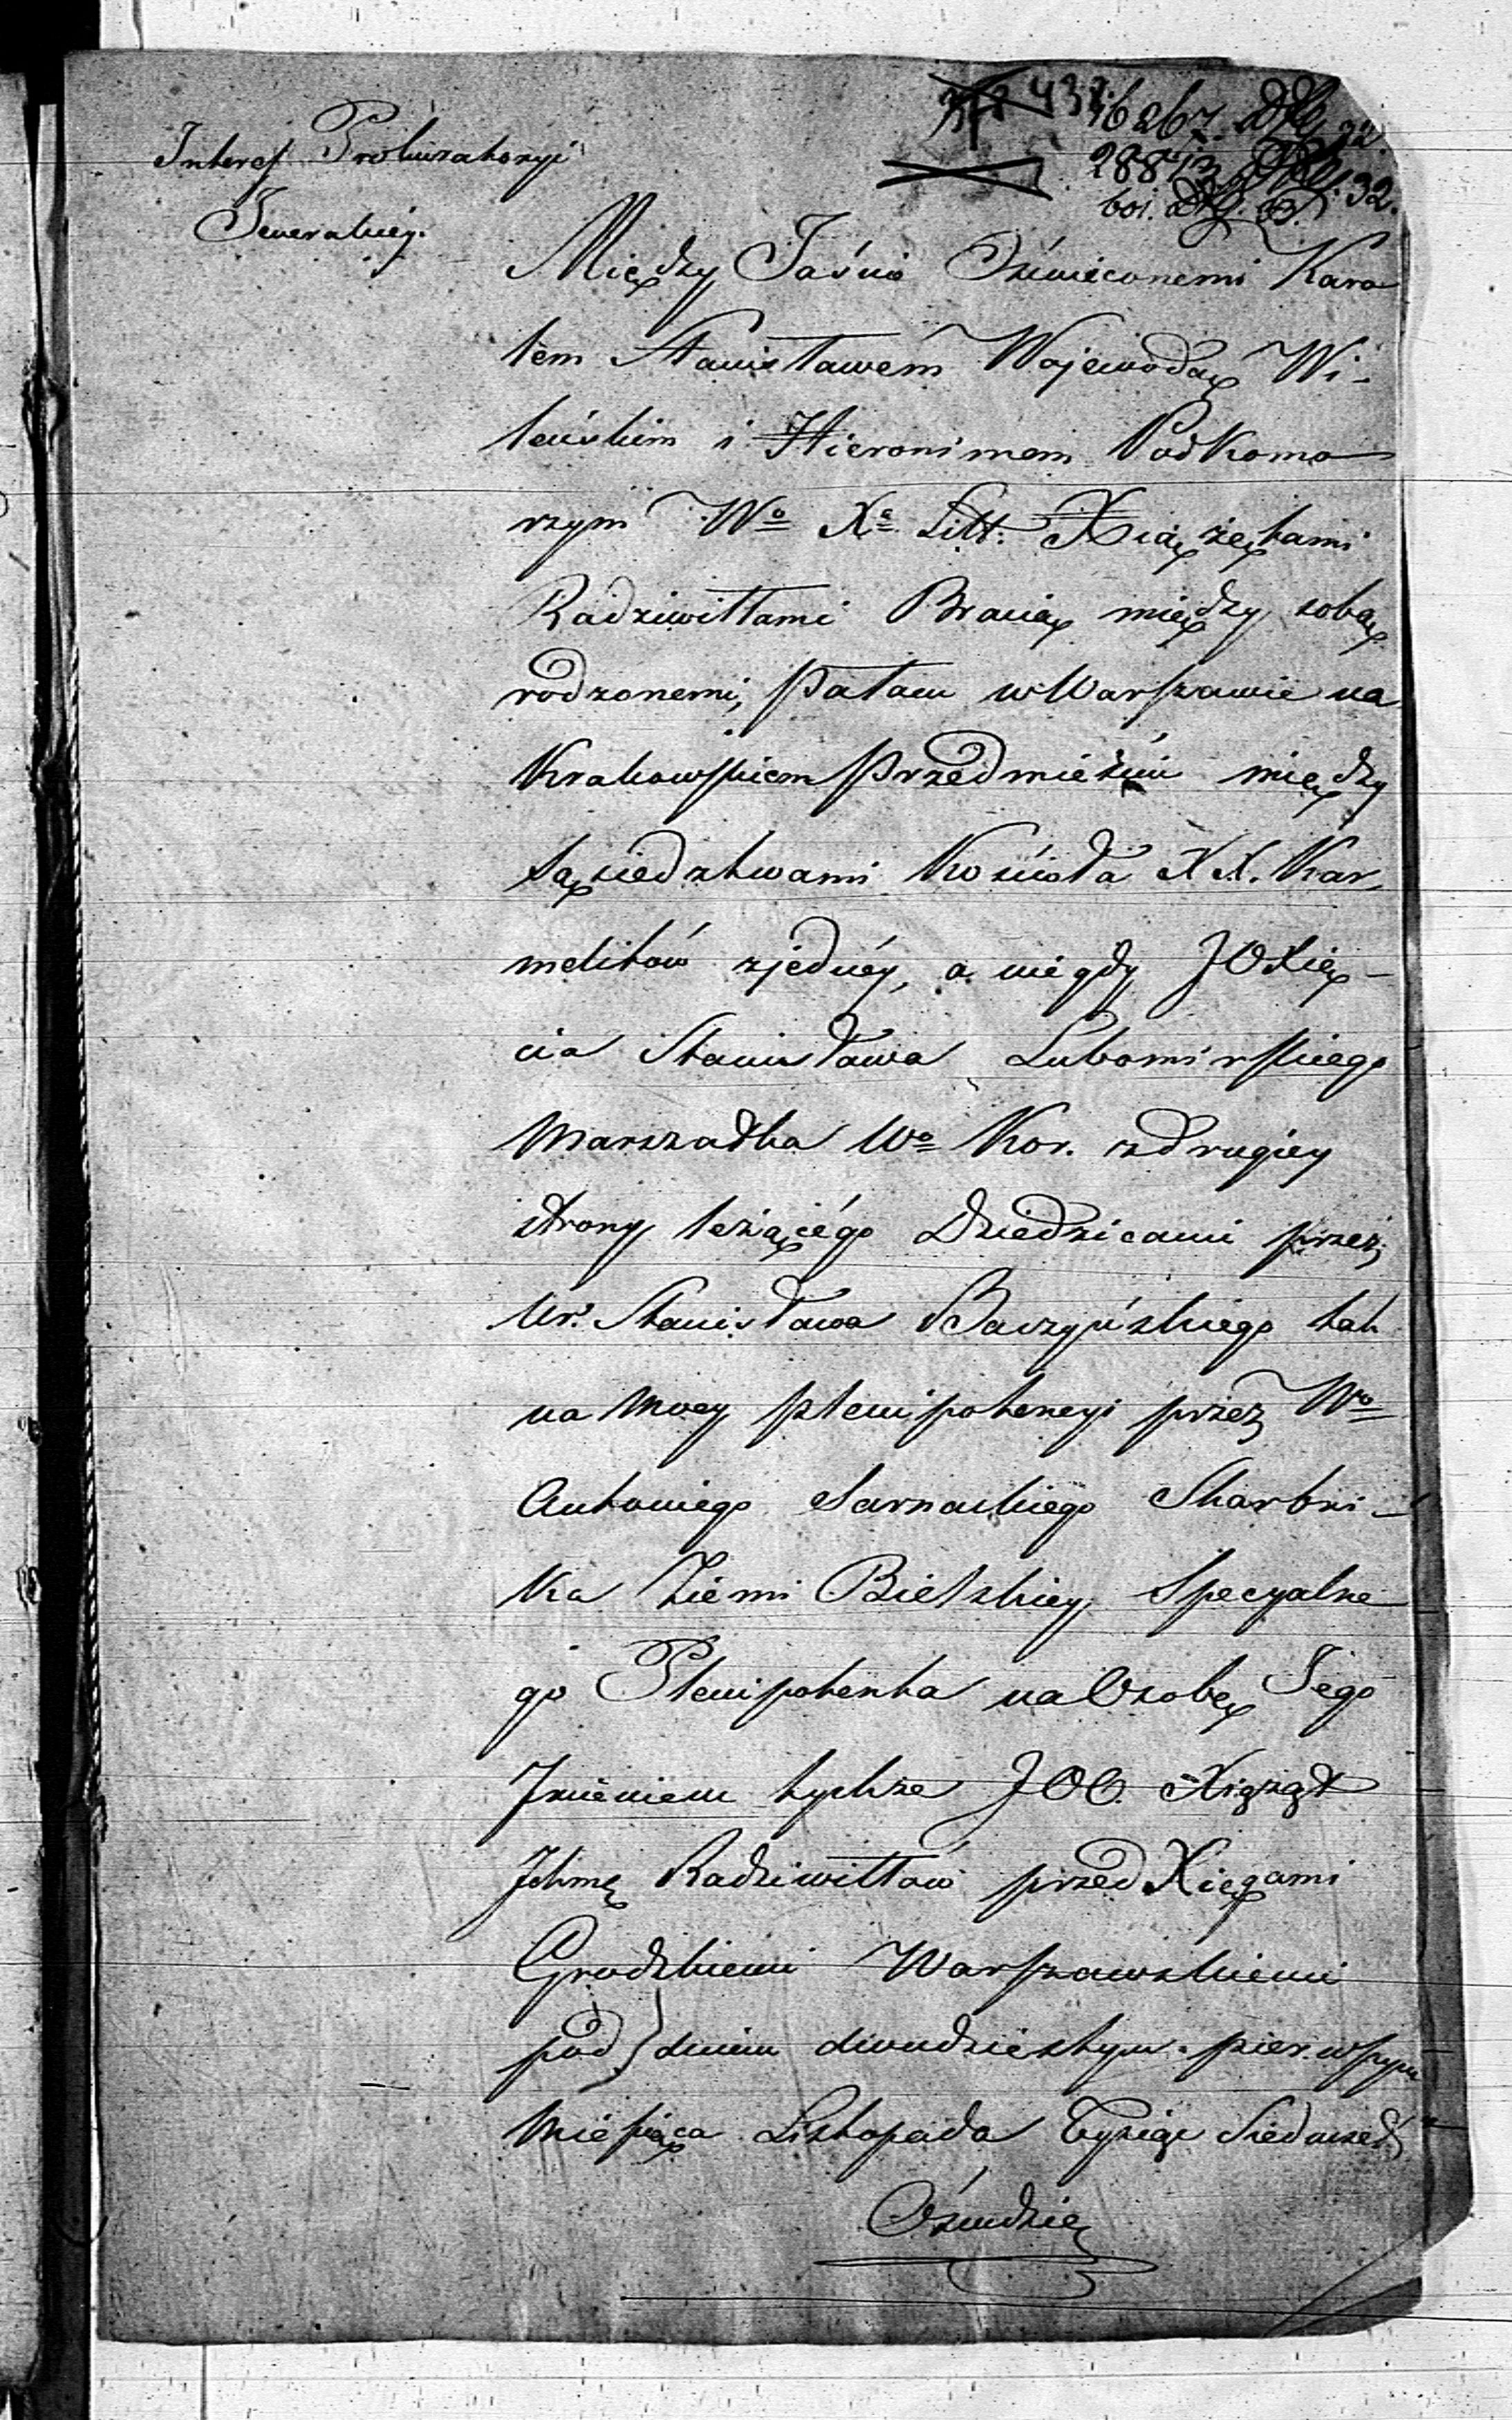 437.
16267.
288
32.
601.
Interes Prokuratoryi
Generalnéy.
Między Jaśnie Oświeconemi Karo
lem Stanisławem Wojewodą Wi-
leńskim i Hieronimem Podkomo
rzym Wo Xa Litt. Xiążętami
Radziwiłłami Bracią między sobą
rodzonemi, Pałacu w Warszawie na
Krakowskiem Przedmieściu między
Sąsiedztwami Kościoła XX. Kar,
melitów z jednéy, a niegdy JO Xię-
cia Stanisława Lubomirskiego
Marszałka Wo Kor. z drugiey
strony leżącégo Dziedzicami przez
Ur. Stanisława Baczyńskiego tak
na Mocy plenipotencyi przez Wo
Antoniego Sarnackiego Skarbni-
ka Ziemi Bielskiey Specyalne
go Plenipotenta na Osobę Jego
Jmieniem tychże JOO. Xiążąt
Ichmę Radziwiłłów przed Xięgami
Grodzkiemi Warszawskiemi
pod dniem dwudziestym pierwszym
Miesiąca Listopada Tysiąc Siedmset
Ośmdzie